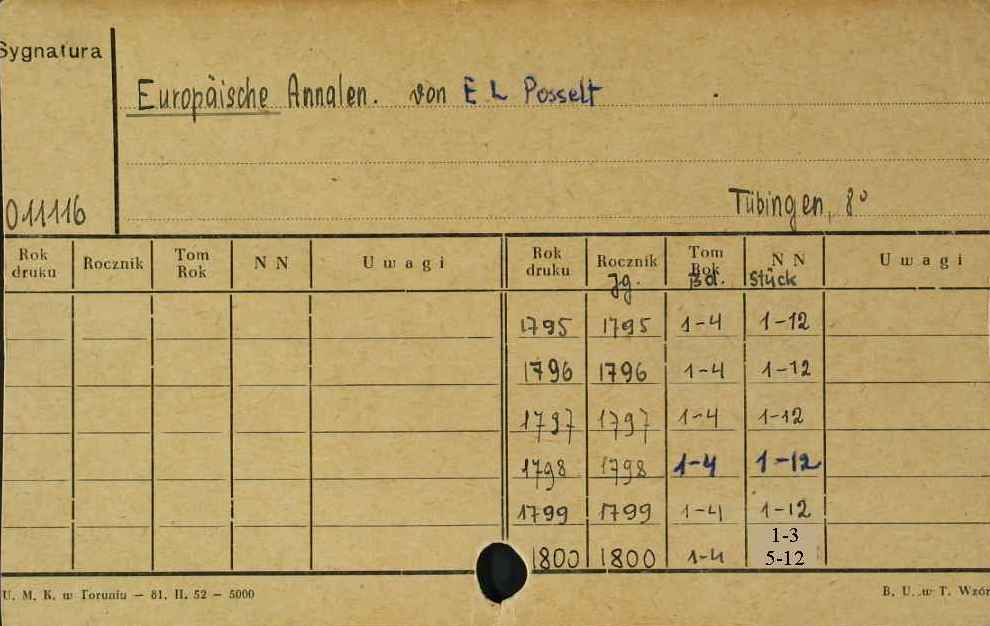 Sygnatura
Europäische Annalen. von E L Posselt
011116
Tübingen, 8°
Rok druku Rocznik Tom Rok N N Uwagi Rok druku Rocznik Jg. Tom Rok Bd. N N Stück Uwagi
1795 1795 1-4 1-12
1796 1796 1-4 1-12
1797 1797 1-4 1-12
1798 1798 1-4 1-12
1799 1799 1-4 1-12
1800 1800 1-4 1-3 5-12
U. M. K. w Toruniu — 81. II. 52 — 5000 B. U. w T. Wzór